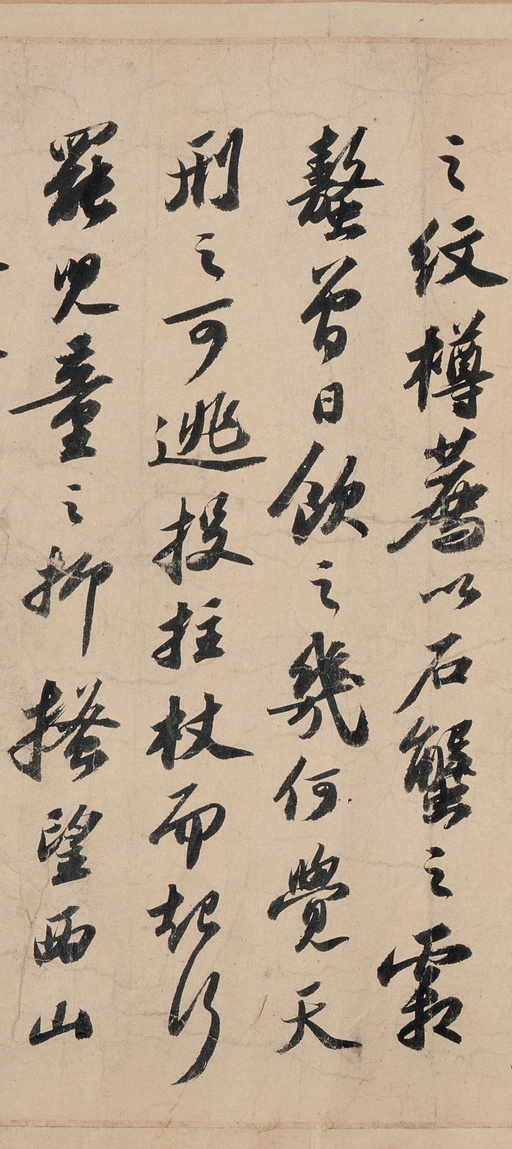 之紋樽薦以石蟹之霜
螯曾日飲之幾何覺天
刑之可逃投拄杖而起行
罷兒童之抑搔望西山